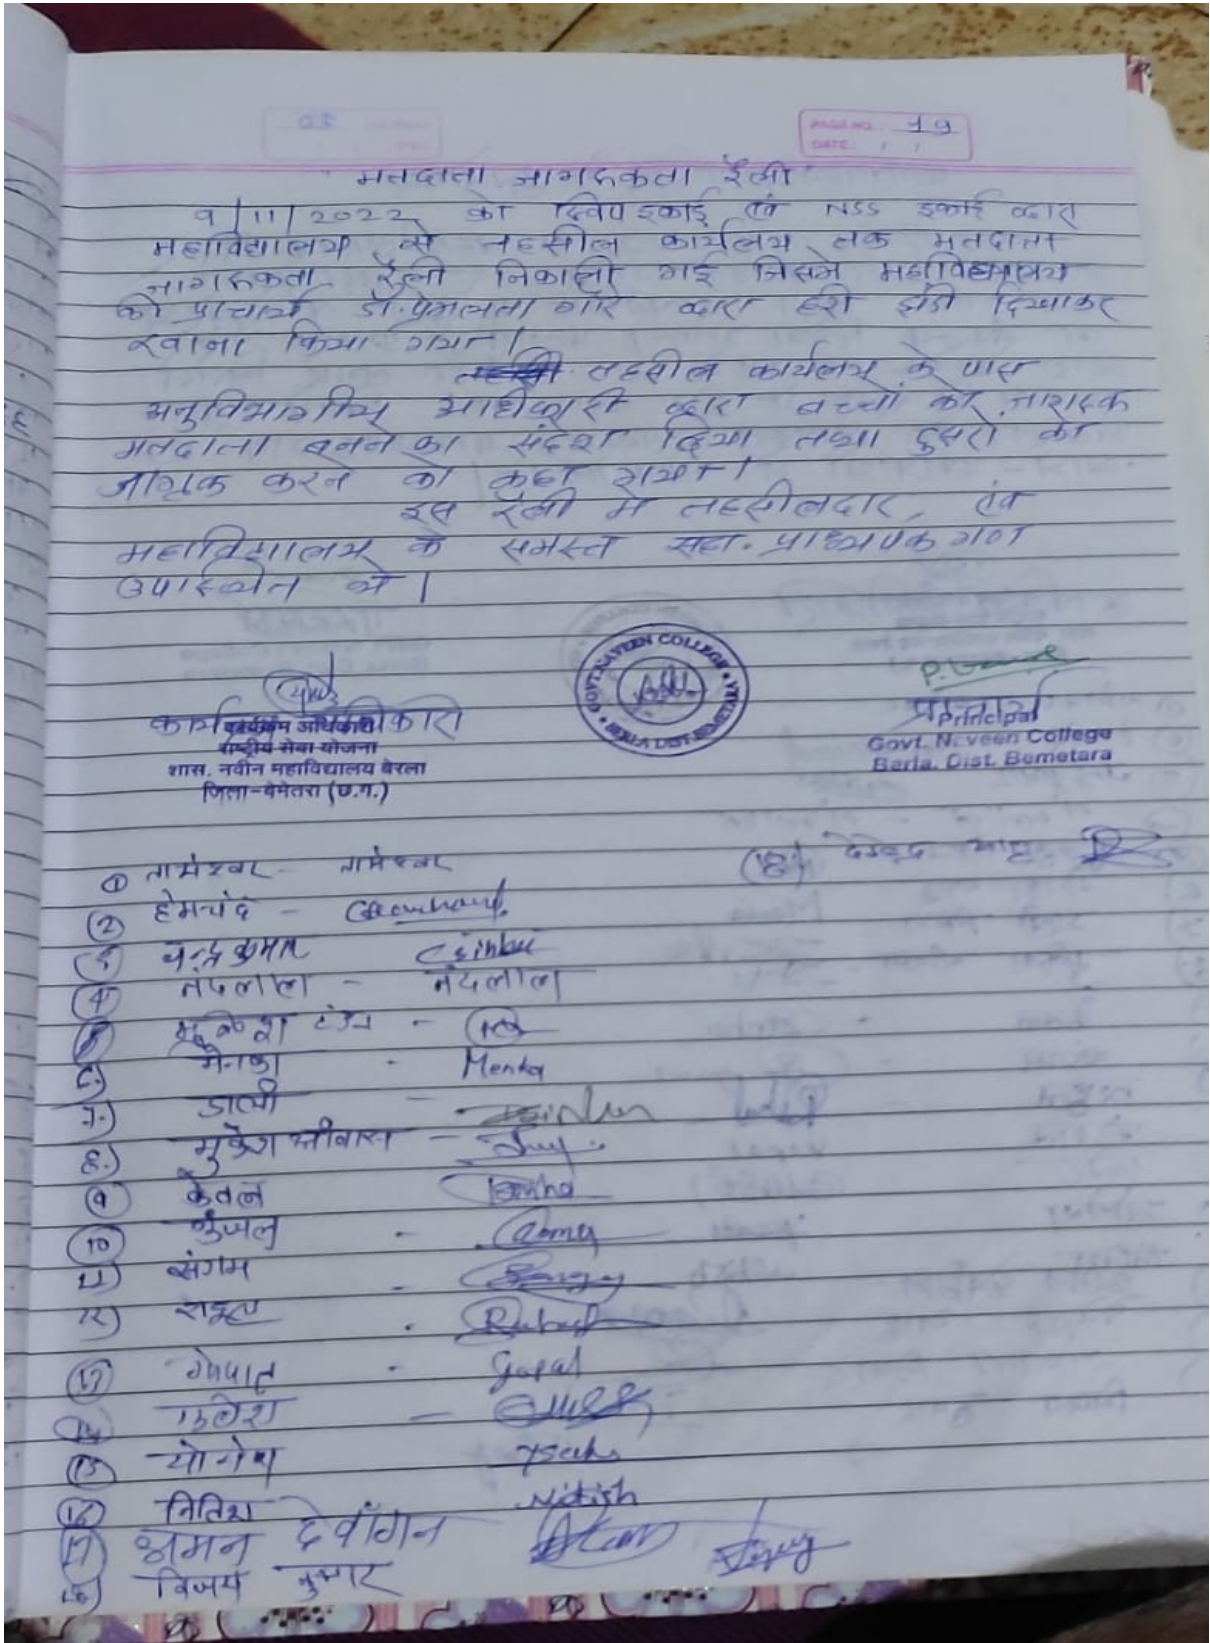 PAGE NO. 19
DATE: / /
"मतदाता जागरूकता रैली"
9/11/2022 को स्विप इकाई एवं NSS इकाई द्वारा
महाविद्यालय से तहसील कार्यलय तक मतदाता
जागरूकता रैली निकाली गई जिसमे महाविद्यालय
की प्राचार्य डॉ. प्रेमलता गौरे द्वारा हरी झंडी दिखाकर
रवाना किया गया।
तहसील कार्यलय के पास
अनुविभागीय अधिकारी द्वारा बच्चो को जागरूक
मतदाता बनने का संदेश दिया तथा दुसरो को
जागरूक करने को कहा गया।
इस रैली मे तहसीलदार, एंव
महाविद्यालय के समस्त सहा. प्राध्यपक गण
उपस्थित थे।
GOVT. NAVEEN COLLEGE
BERLA DIST. BEMETARA
कार्यक्रम अधिकारी
कार्यक्रम अधिकारी
राष्ट्रीय सेवा योजना
शास. नवीन महाविद्यालय बेरला
जिला-बेमेतरा (छ.ग.)
प्राचार्य
Principal
Govt. Naveen College
Berla, Dist. Bemetara
① तामेश्वर - तामेश्वर
② हेमचंद -
③ चन्द्र कुमार
④ नंदलाल - नंदलाल
⑤ टंडन -
6.) मेनका - Menka
7.) डाली -
8.) मुकेश श्रीवास -
⑨ केवल
⑩ -
11) संगम -
12) राहुल - Rahul
⑬ गोपाल - Gopal
⑭ -
⑮ योगेश
⑯ नितिश Nitish
⑰ अमन देवाँगन
18) विजय कुमार